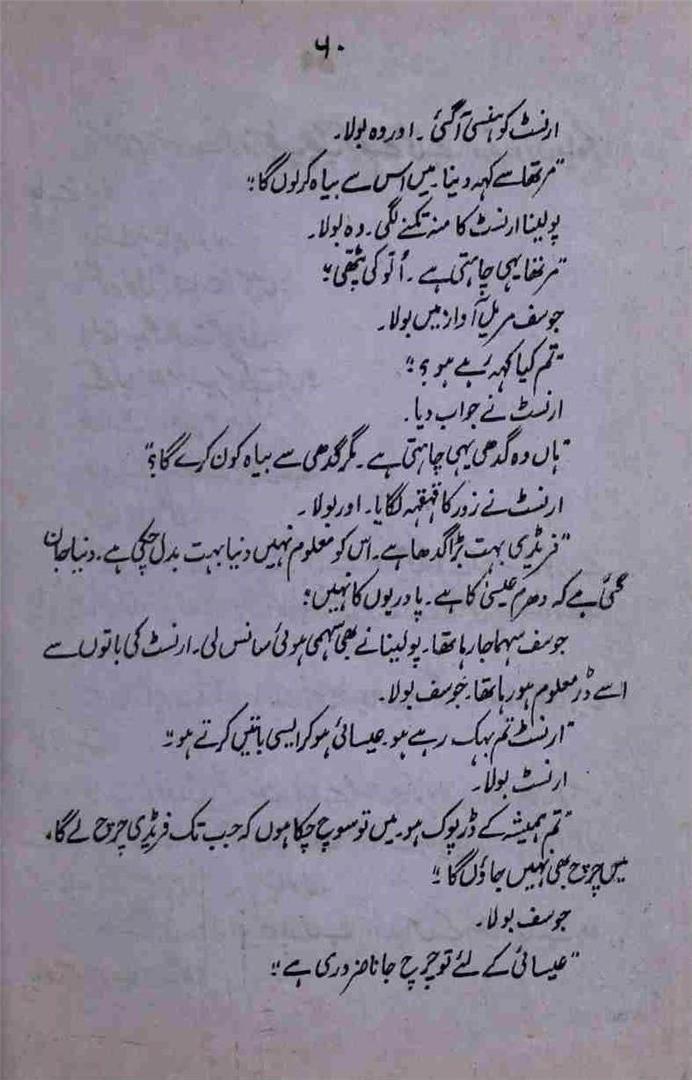 ۶۰
ارنسٹ کو ہنسی آ گئی۔ اور وہ بولا۔
"مرتھا سے کہہ دینا۔ میں اس سے بیاہ کر لوں گا"
پولینا ارنسٹ کا منہ تکنے لگی۔ وہ بولا۔
"مرتھا یہی چاہتی ہے۔ اُلّو کی پٹھی"
جوسف مریل آواز میں بولا۔
"تم کیا کہہ رہے ہو؟"
ارنسٹ نے جواب دیا۔
"ہاں وہ گدھی یہی چاہتی ہے۔ مگر گدھی سے بیاہ کون کرے گا؟"
ارنسٹ نے زور کا قہقہہ لگایا۔ اور بولا۔
"فریڈی بہت بڑا گدھا ہے۔ اس کو معلوم نہیں دنیا بہت بدل چکی ہے۔ دنیا جان
گئی ہے کہ دھرم عیسیٰ کا ہے۔ پادریوں کا نہیں"
جوسف سہما جا رہا تھا۔ پولینا نے بھی سہمی ہوئی سانس لی۔ ارنسٹ کی باتوں سے
اسے ڈر معلوم ہو رہا تھا۔ جوسف بولا۔
"ارنسٹ تم بہک رہے ہو۔ عیسائی ہو کر ایسی باتیں کرتے ہو"
ارنسٹ بولا۔
"تم ہمیشہ کے ڈرپوک ہو۔ میں تو سوچ چکا ہوں کہ جب تک فریڈی چرچ لے گا،
میں چرچ بھی نہیں جاؤں گا"
جوسف بولا۔
"عیسائی کے لئے تو چرچ جانا ضروری ہے"